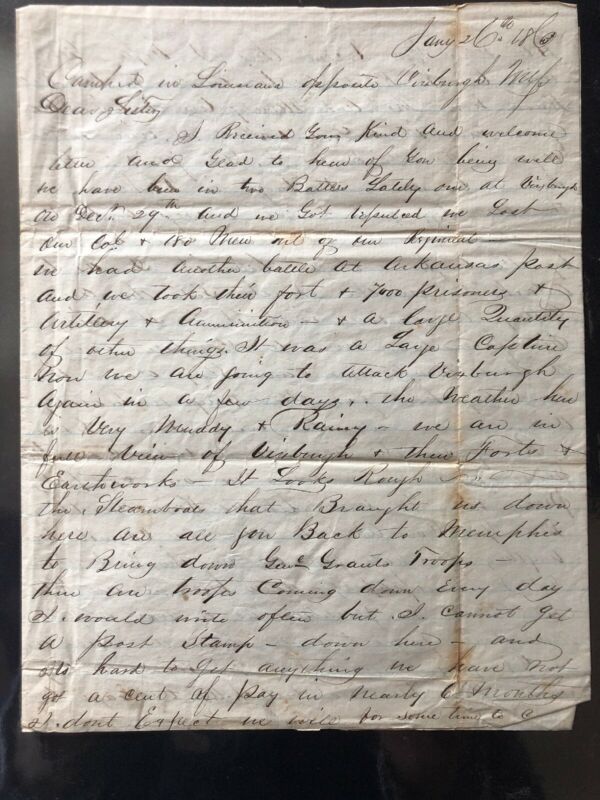 Jany 26th 1863
Camped in Louisiana opposite Vixburgh Miss
Dear Sister
I Received your Kind And welcome
letter and Glad to hear of you being well
we have been in two Battles Lately one at Vixburgh
on Decr 29th And we Got repulsed we Lost
our Col & 180 Men out of our Regiment —
we had another battle At Arkansas post
And we took their fort & 7000 prisoners &
Artillery & Ammunition — & a large Quantity
of other things. It was a Large Capture
Now we are going to Attack Vixburgh
Again in a few days. the Weather here
is Very Muddy & Rainy — we are in
full View of Vixburgh & their Forts &
Earthworks — It Looks Rough
the Steamboats that Braught us down
here are all gon Back to Memphis
to Bring down Genl Grants Troops —
there are troops Coming down Every day
I would write often but I cannot get
a post Stamp — down here — and
its hard to Get anything we have not
got a cent of pay in nearly 6 Months
I dont Expect we will for some time to c